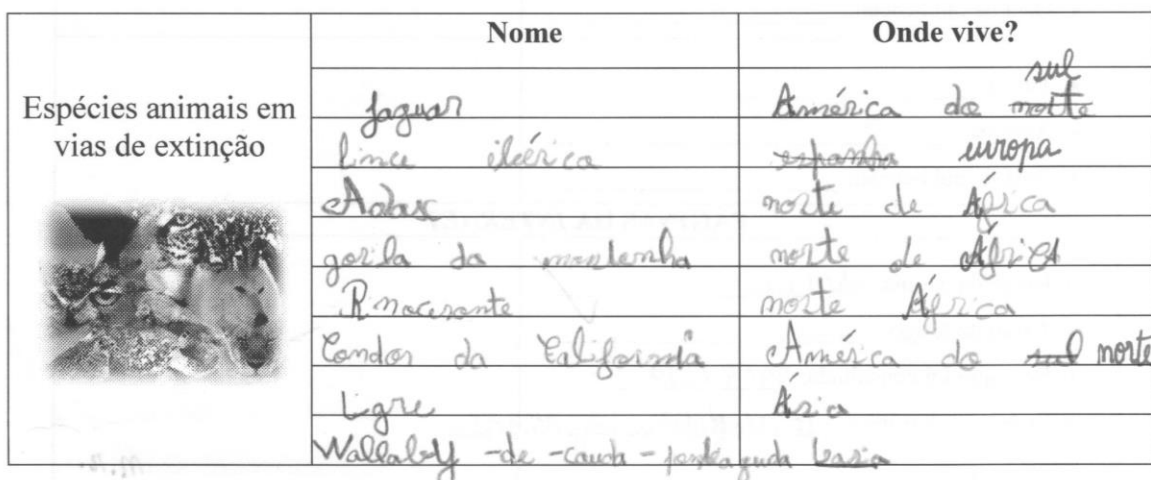 Nome Onde vive?
Espécies animais em
vias de extinção
Jaguar América do norte sul
lince ibérica espanha europa
Adax norte de África
gorila da montenha norte de África
Rinocerante norte África
Condor da California América do sul norte
tigre Ásia
Wallaby -de -cauda -